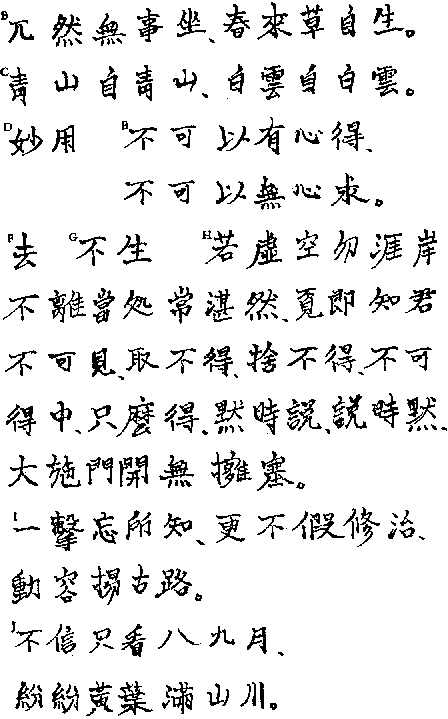 B兀然無事坐、春來草自生。
C青山自青山、白雲自白雲。
D妙用 E不可以有心得、
不可以無心求。
F去 G不生 H若虛空勿涯岸
不離當処常湛然、覓即知君
不可見、取不得、捨不得、不可
得中、只麼得、默時説、説時默、
大施門開無擁塞。
I一擊忘所知、更不假修治、
動容揚古路。
J不信只看八九月、
紛紛黄葉滿山川。